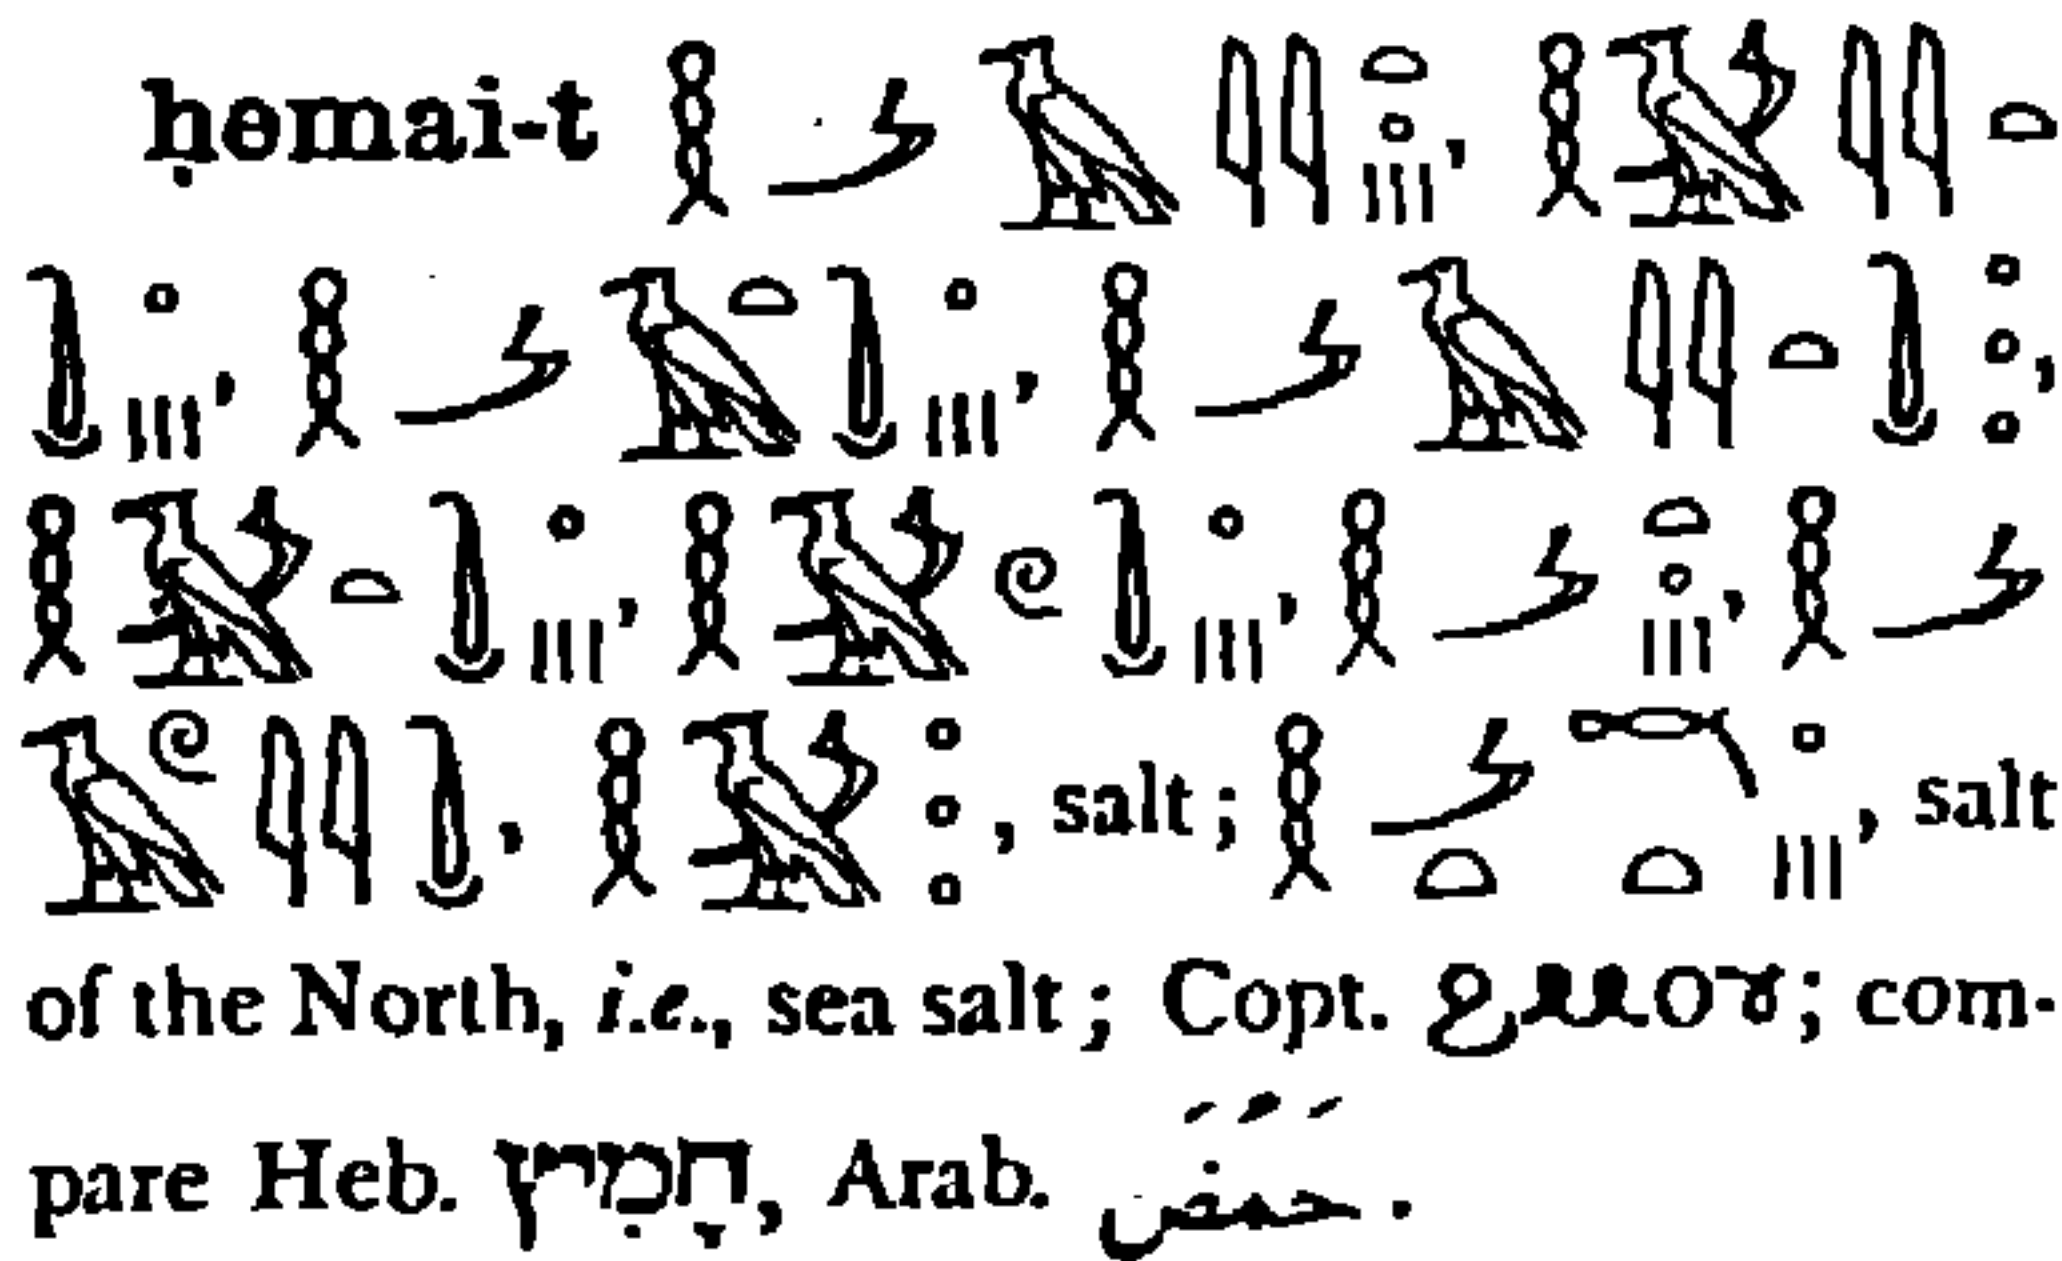 ḥemai-t 𓎛𓌳𓄿𓇋𓇋𓏏𓈒𓏥, 𓎛𓅁𓇋𓇋𓏏
𓈒𓏥, 𓎛𓌳𓄿𓏏 𓈒𓏥, 𓎛𓌳𓄿𓇋𓇋𓏏 𓈒𓈒𓈒,
𓎛𓅁𓏏 𓈒𓏥, 𓎛𓅁𓏲 𓈒𓏥, 𓎛𓌳𓏏𓈒𓏥, 𓎛𓌳
𓄿𓏲𓇋𓇋, 𓎛𓅁𓈒𓈒𓈒, salt; 𓎛𓌳𓏏𓎔𓏏𓈒𓏥, salt
of the North, i.e., sea salt; Copt. ϩⲙⲟⲩ; com-
pare Heb. חָמִיץ, Arab. حَمُضَ.